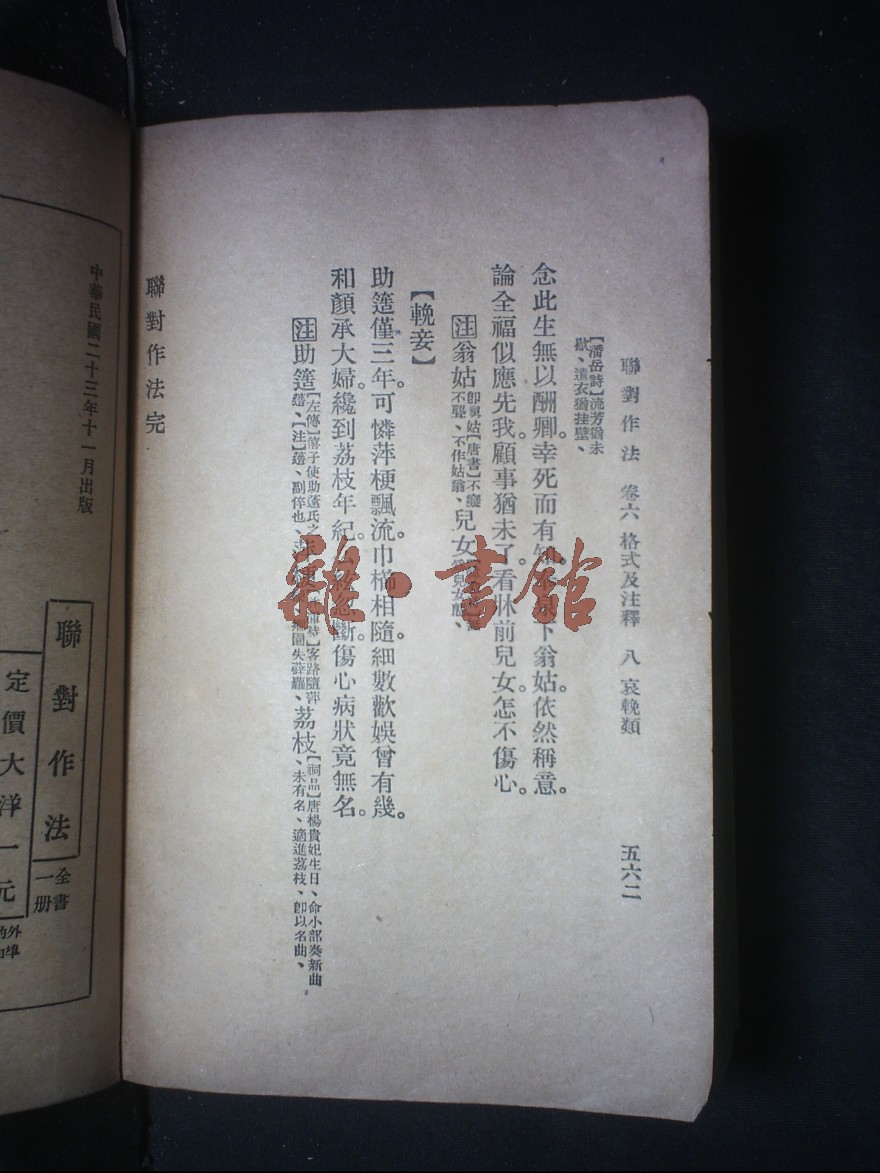 聯對作法 卷六 格式及注釋 八 哀輓類 五六二
【潘岳詩】流芳猶未
歇、遺衣猶挂壁、
念此生無以酬卿。幸死而有知。下翁姑依然稱意。
論全福似應先我。顧事猶未了。看牀前兒女。怎不傷心。
注翁姑卽舅姑【唐書】不癡
不聾、不作姑翁、兒女兒女態、
【輓妾】
助簉僅三年。可憐萍梗飄流。巾櫛相隨。細數歡娛曾有幾。
和顏承大婦。纔到荔枝年紀。忽斷。傷心病狀竟無名。
注助簉【左傳】僖子使助薳氏之
簉、【注】簉、副倅也、客路隨萍
失薜蘿、荔枝【詞品】唐楊貴妃生日、命小部奏新曲
、未有名、適進荔枝、卽以名曲、
聯對作法完
中華民國二十三年十一月出版
聯對作法
全書
一册
定價大洋一元
外埠
雜·書館